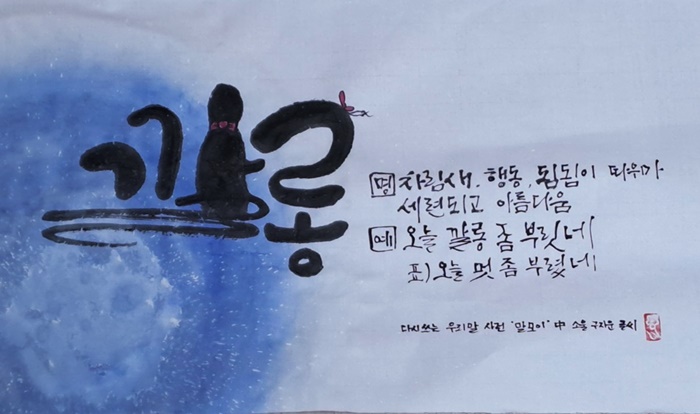 깔롱
명 차림새, 행동, 됨됨이 따위가
세련되고 아름다움
예 오늘 깔롱 좀 부릿네
표) 오늘 멋 좀 부렸네
다시쓰는 우리말 사전 "말모이" 中 구자운 글씨